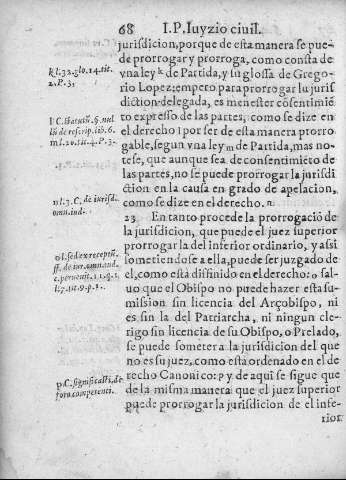 68 I. P. Iuyzio ciuil.
jurisdicion, porque de esta manera se pue-
de prorrogar y prorroga, como consta de
vna ley k de Partida, y su glossa de Grego-
rio Lopez: empero para prorrogar lu juris
diction delegada, es menester cõsentimiẽ
to expresso de las partes, como se dize en
el derecho l por ser de esta manera prorro
gable, segun vna ley m de Partida, mas no-
tese, que aunque sea de consentimiẽto de
las partes, no se puede prorrogar la jurisdi
ction en la causa en grado de apelacion,
como se dize en el derecho. n
23 En tanto procede la prorrogaciõ de
la jurisdicion, que puede el juez superior
prorrogar la del inferior ordinario, y assi
sometiendose a ella, puede ser juzgado de
el, como està diffinido en el derecho: o sal-
uo que el Obispo no puede hazer esta su-
mission sin licencia del Arçobispo, ni
es sin la del Patriarcha, ni ningun cle-
rigo sin licencia de su Obispo, o Prelado,
se puede someter a la jurisdicion del que
no es su juez, como esta ordenado en el de
recho Canonico: p y de aqui se sigue que
de la misma manera que el juez superior
puede prorrogar la jurisdicion de el infe-
rior
k l. 32. glo. 14. tit.
2. P. 3,
l C. statutũ. §. nul
lũ de rescrip. lib. 6.
m l. 20. tit. 4. P. 3.
n l. 3. C. de iurisd.
omn. iud.
o l. sed et receptũ.
ff. de iur. omn. iud.
p C. significasti, de
foro competenti.